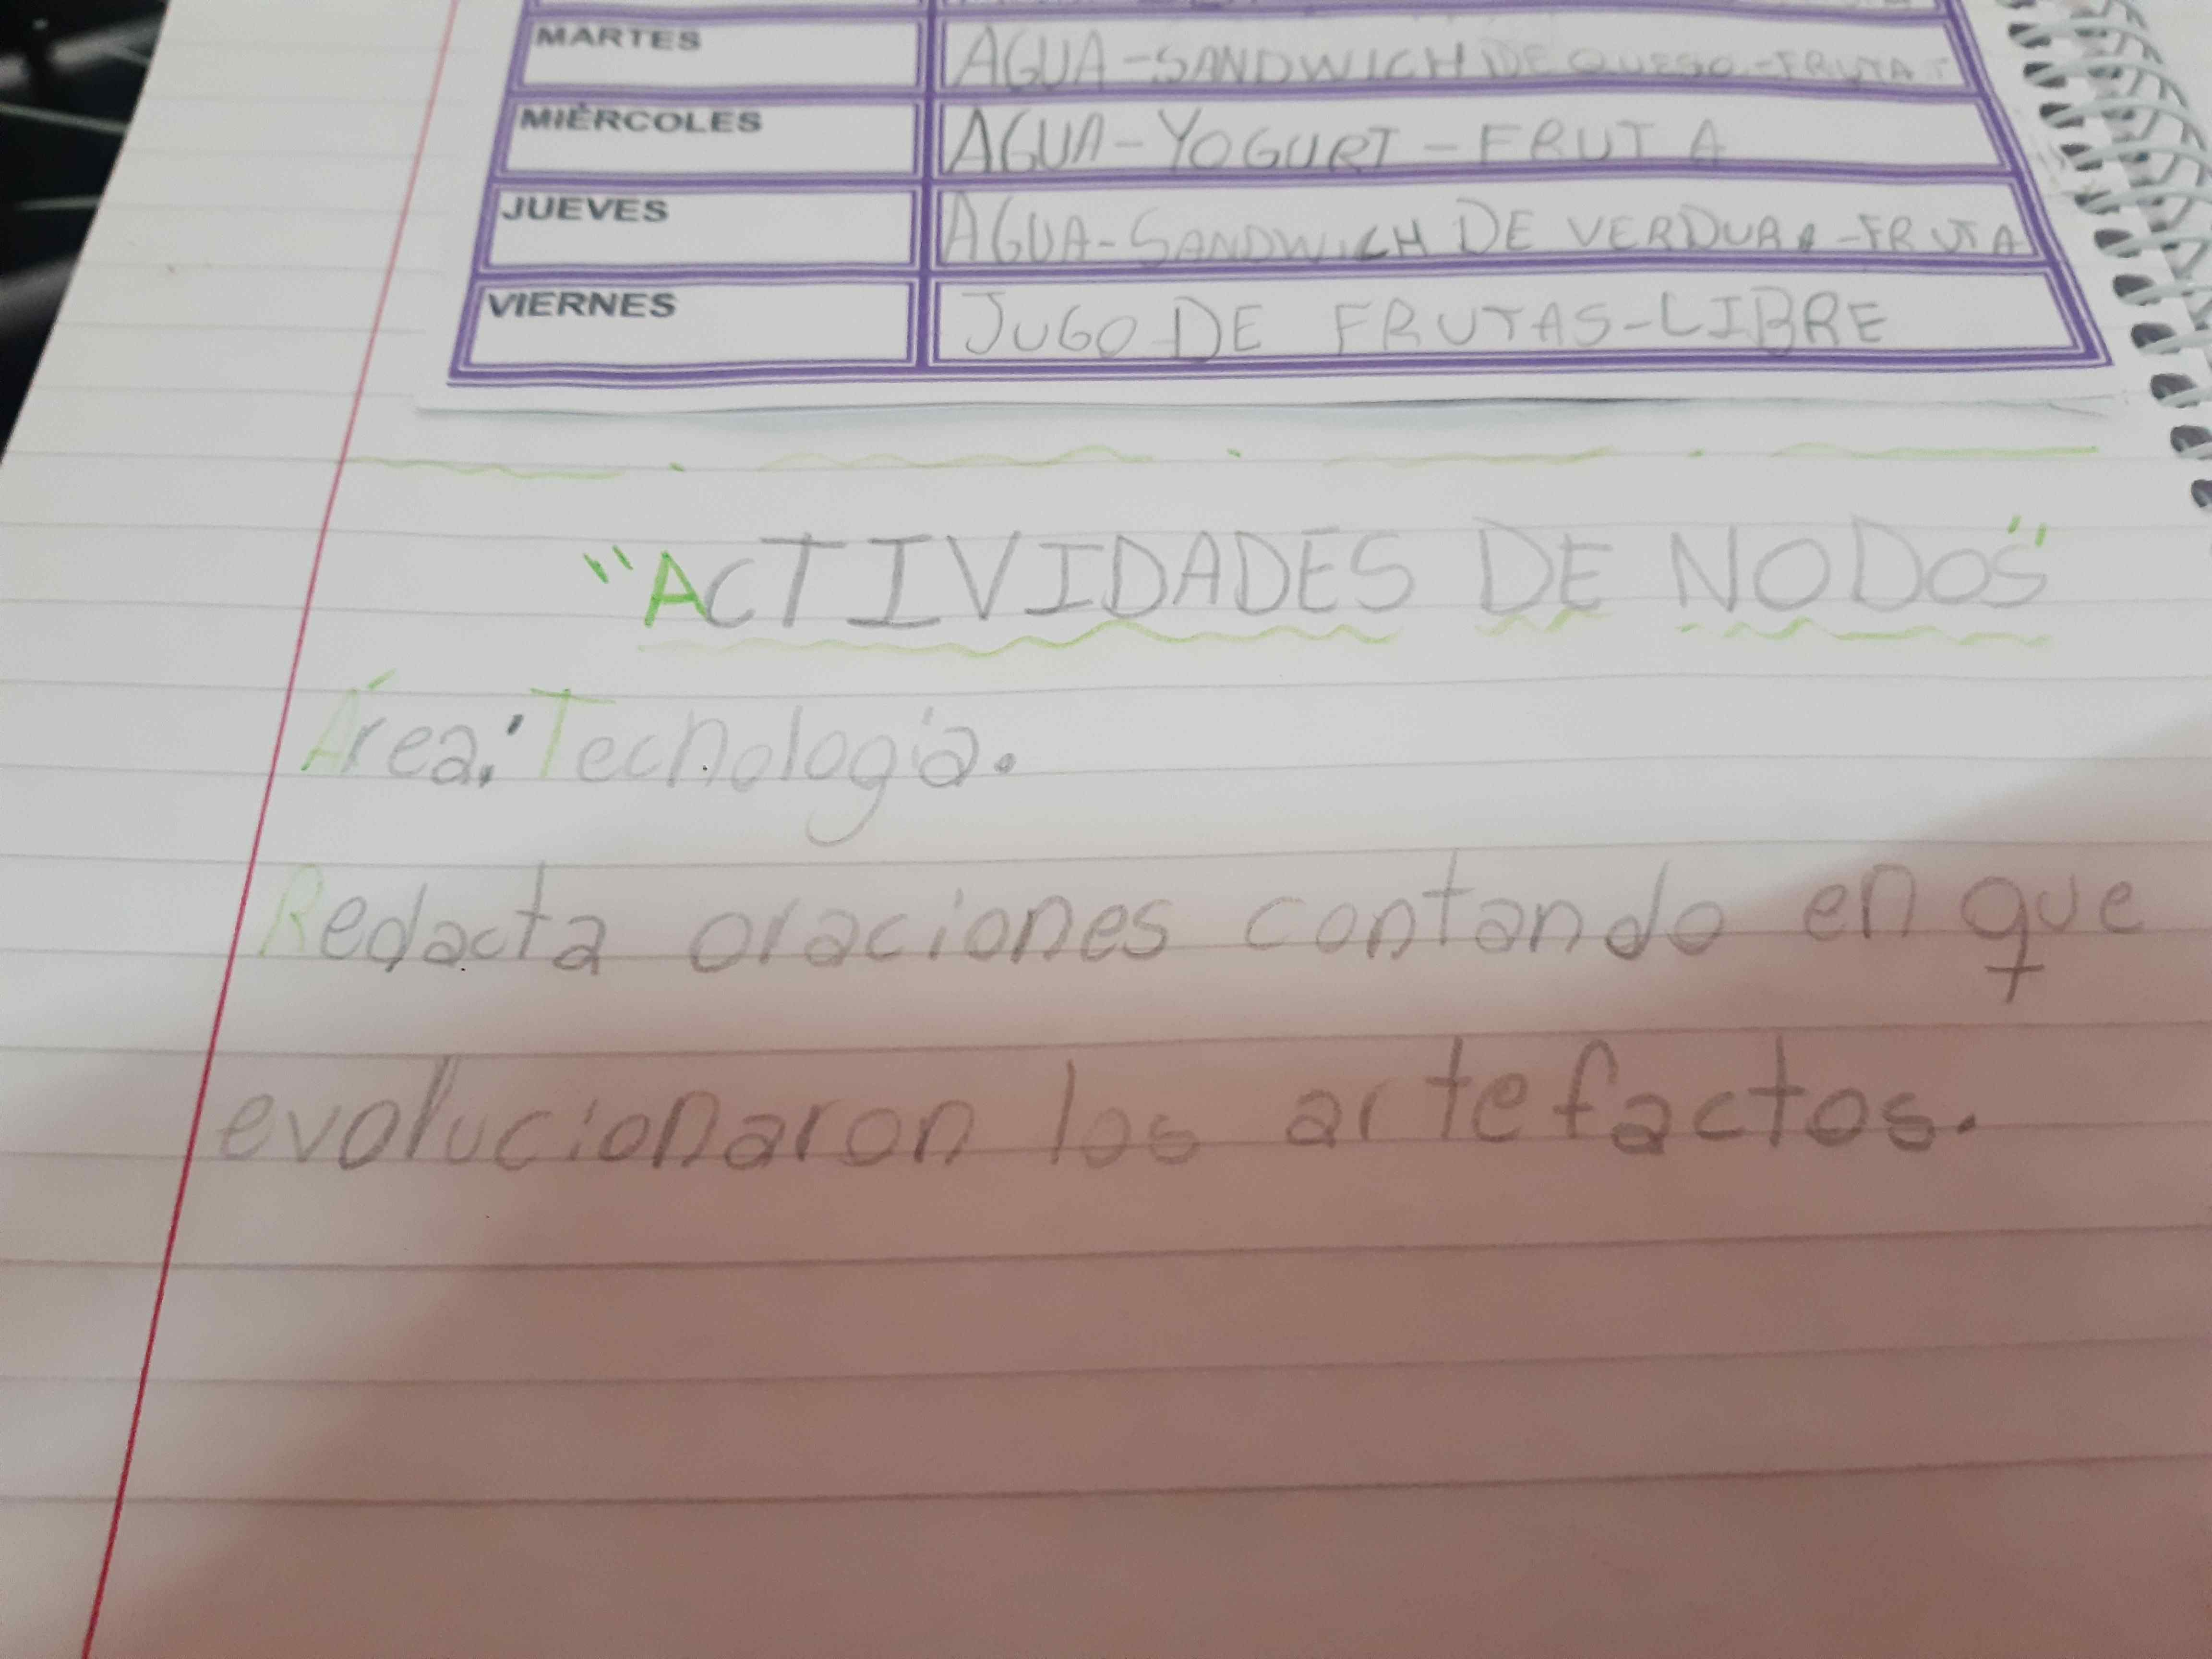 MARTES AGUA-SANDWICH DE QUESO-FRUTA
MIÉRCOLES AGUA-YOGURT-FRUTA
JUEVES AGUA-SANDWICH DE VERDURA-FRUTA
VIERNES JUGO DE FRUTAS-LIBRE
"ACTIVIDADES DE NODOS"
Área: Tecnología.
Redacta oraciones contando en que
evolucionaron los artefactos.